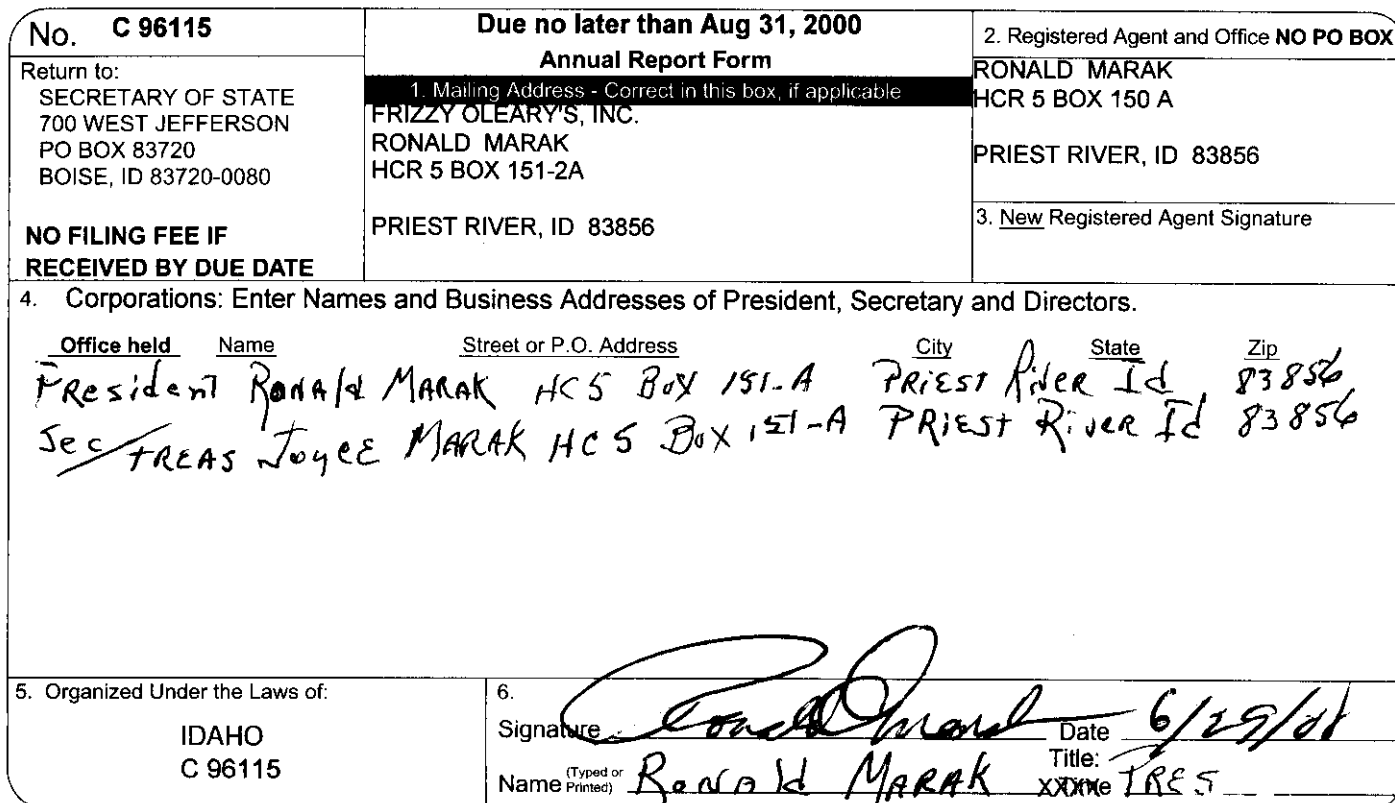 No. C 96115
Return to:
SECRETARY OF STATE
700 WEST JEFFERSON
PO BOX 83720
BOISE, ID 83720-0080
NO FILING FEE IF
RECEIVED BY DUE DATE
Due no later than Aug 31, 2000
Annual Report Form
1. Mailing Address - Correct in this box, if applicable
FRIZZY OLEARY'S, INC.
RONALD MARAK
HCR 5 BOX 151-2A
PRIEST RIVER, ID 83856
2. Registered Agent and Office NO PO BOX
RONALD MARAK
HCR 5 BOX 150 A
PRIEST RIVER, ID 83856
3. New Registered Agent Signature
4. Corporations: Enter Names and Business Addresses of President, Secretary and Directors.
Office held Name Street or P.O. Address City State Zip
PResident RonAld MARAK HC5 BoX 151-A PRiEST RiveR Id 83856
Sec/TREAS JoycE MARAK HC5 BoX 151-A PRiEST RiveR Id 83856
5. Organized Under the Laws of:
IDAHO
C 96115
6.
Signature Date 6/29/
Name (Typed or Printed) RonAld MARAK Title: PRES